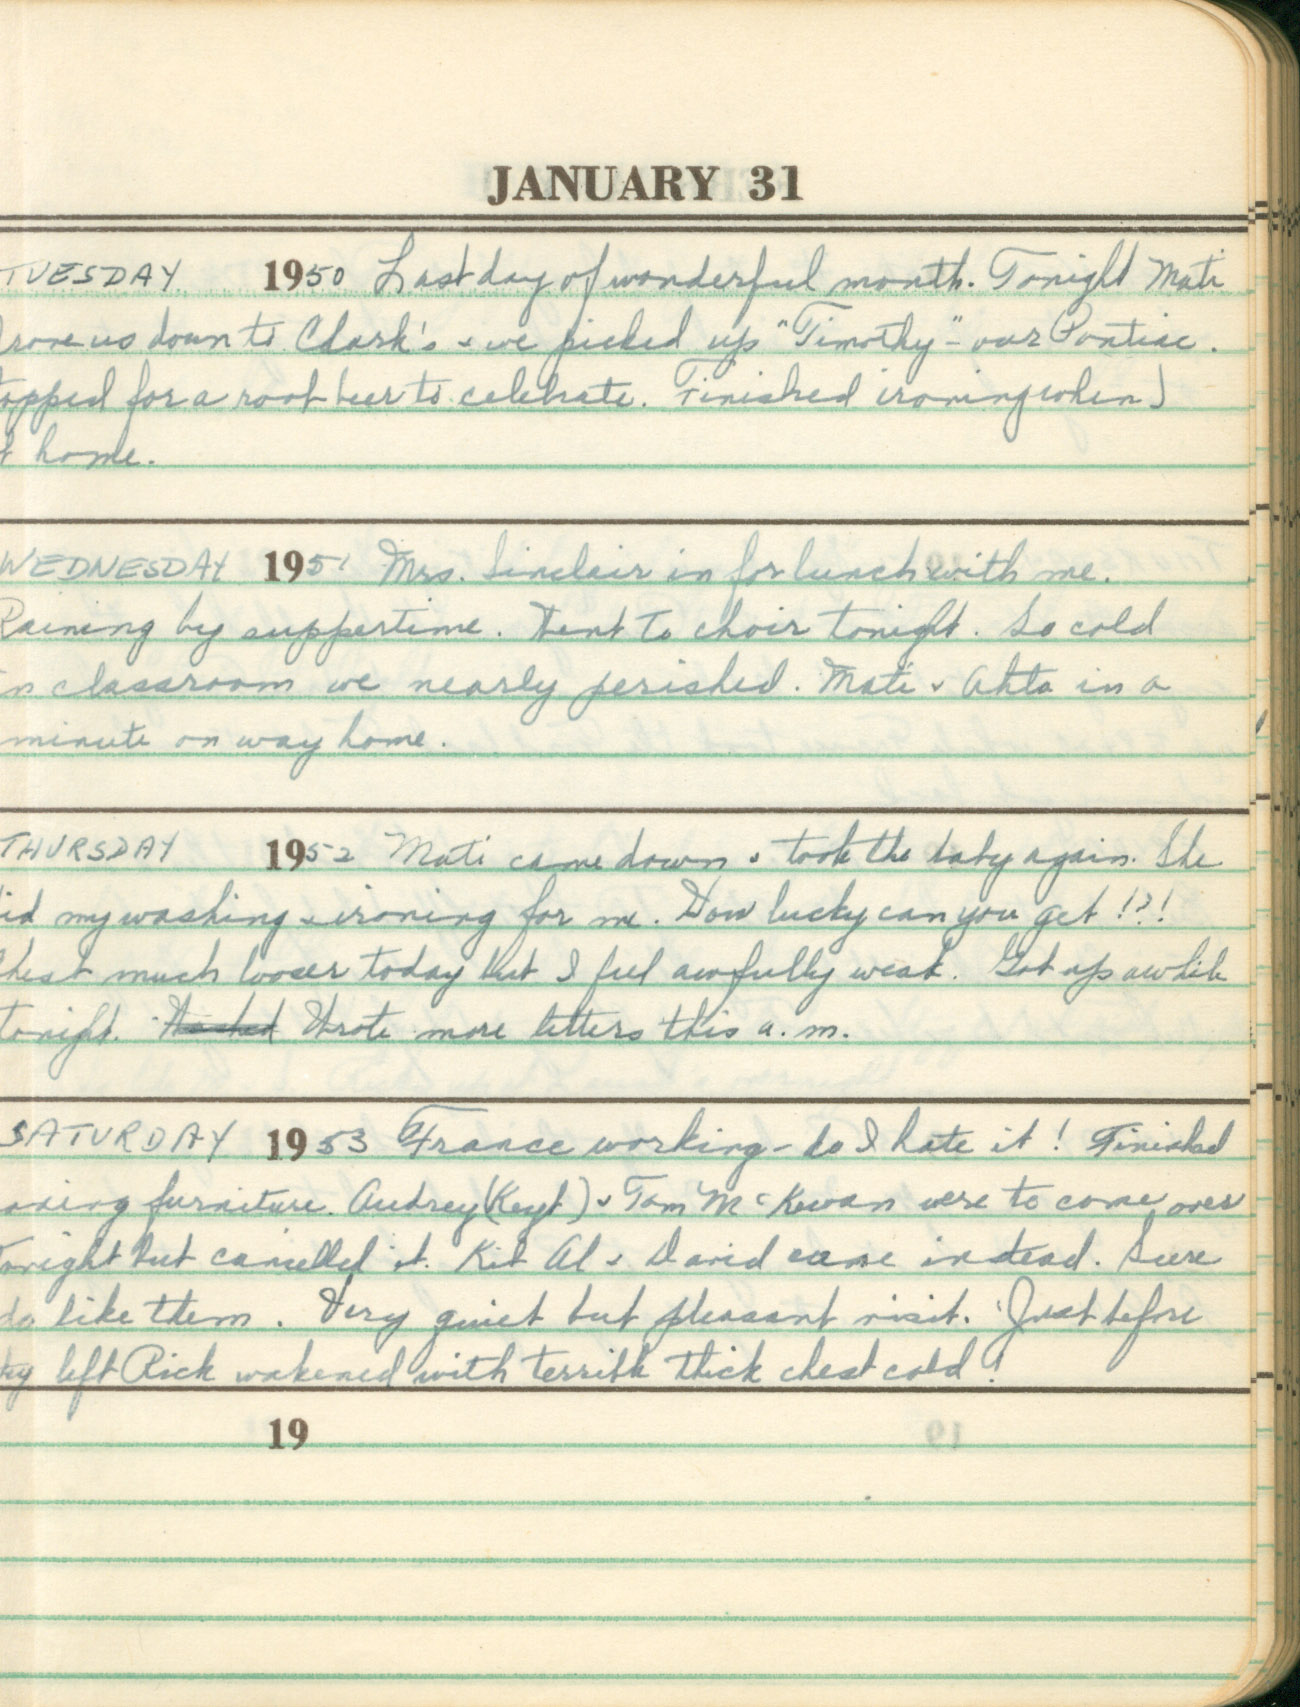 JANUARY 31
TUESDAY 1950 Last day of wonderful month. Tonight Mati
rove us down to Clark's & we picked up "Timothy" - our Pontiac.
topped for a root beer to celebrate. Finished ironing when I
t home.
WEDNESDAY 1951 Mrs. Sinclair in for lunch with me.
Raining by suppertime. Went to choir tonight. So cold
in classroom we nearly perished. Mati & Ahto in a
minute on way home.
THURSDAY 1952 Mati came down & took the baby again. She
id my washing & ironing for me. How lucky can you get!?!
Chest much looser today but I feel awfully weak. Got up awhile
tonight. Washed Wrote more letters this a.m.
SATURDAY 1953 France working - do I hate it! Finished
furniture. Audrey (Keyt) & Tom McKewan were to come over
tonight but cancelled it. Kit Al & David came instead. Sure
do like them. Very quiet but pleasant visit. Just before
they left Rick wakened with terrible thick chest cold!
19